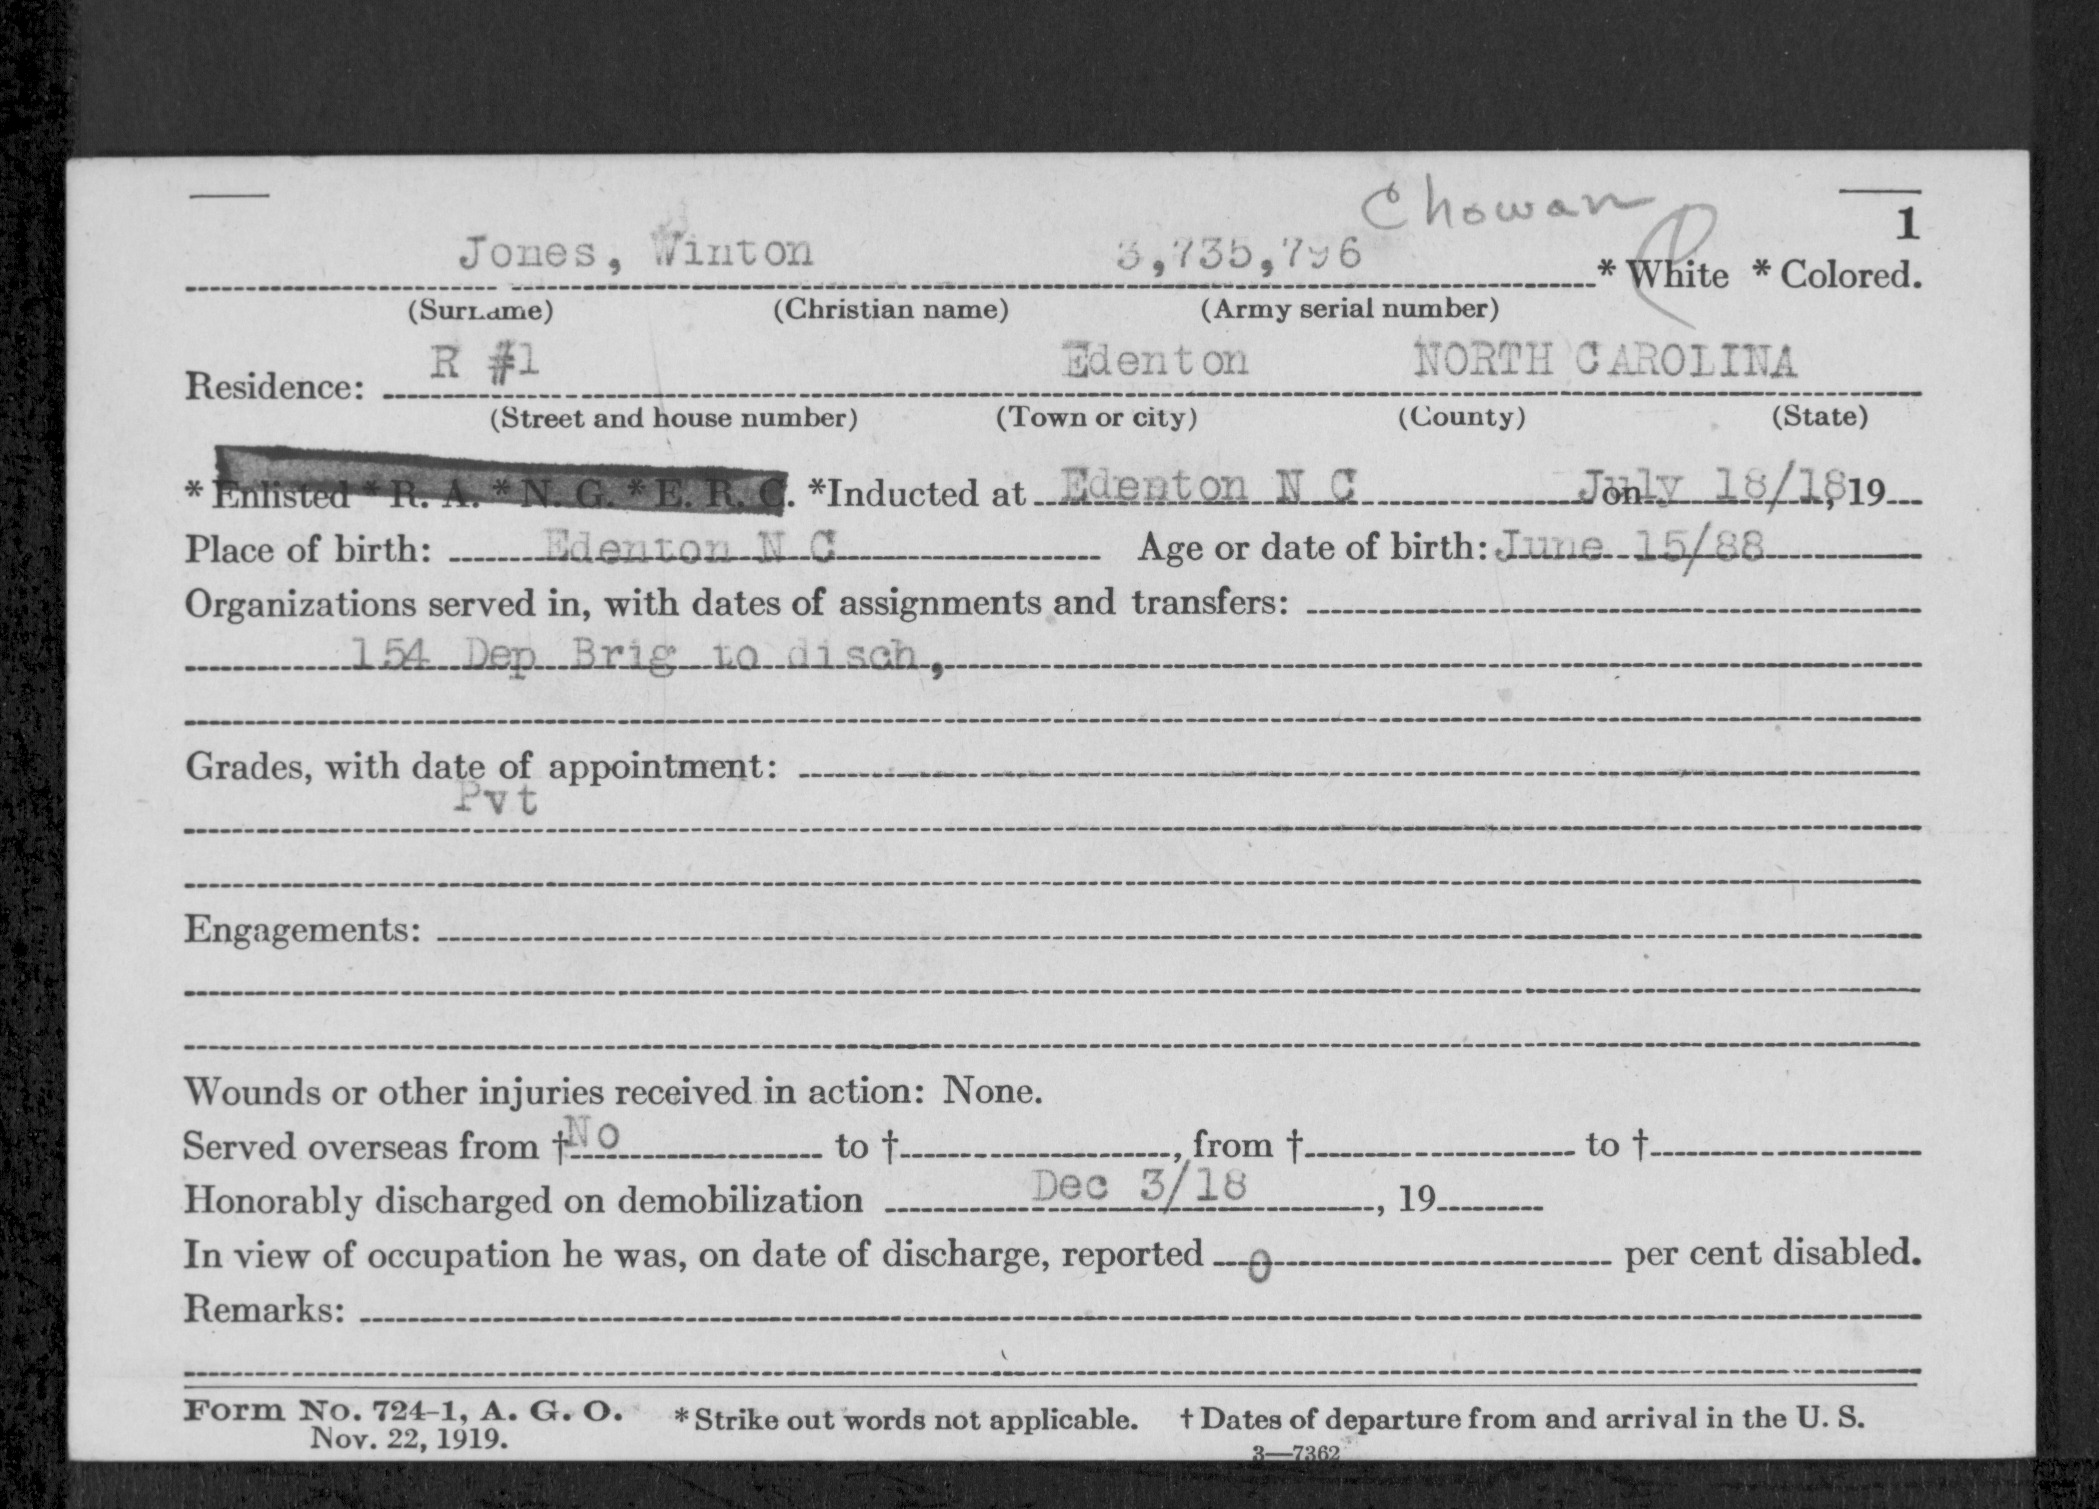 Chowan
1
Jones, Winton 3,735,796 * White * Colored.
(Surname) (Christian name) (Army serial number)
R #1 Edenton NORTH CAROLINA
Residence:
(Street and house number) (Town or city) (County) (State)
* Enlisted * R. A. * N. G. * E. R. C. *Inducted at Edenton N C on July 18/18, 19
Place of birth: Edenton N C Age or date of birth: June 15/88
Organizations served in, with dates of assignments and transfers:
154 Dep Brig to disch,
Grades, with date of appointment:
Pvt
Engagements:
Wounds or other injuries received in action: None.
Served overseas from † No to †, from † to †
Honorably discharged on demobilization Dec 3/18, 19
In view of occupation he was, on date of discharge, reported 0 per cent disabled.
Remarks:
Form No. 724-1, A. G. O. * Strike out words not applicable. † Dates of departure from and arrival in the U. S.
Nov. 22, 1919.
3—7362